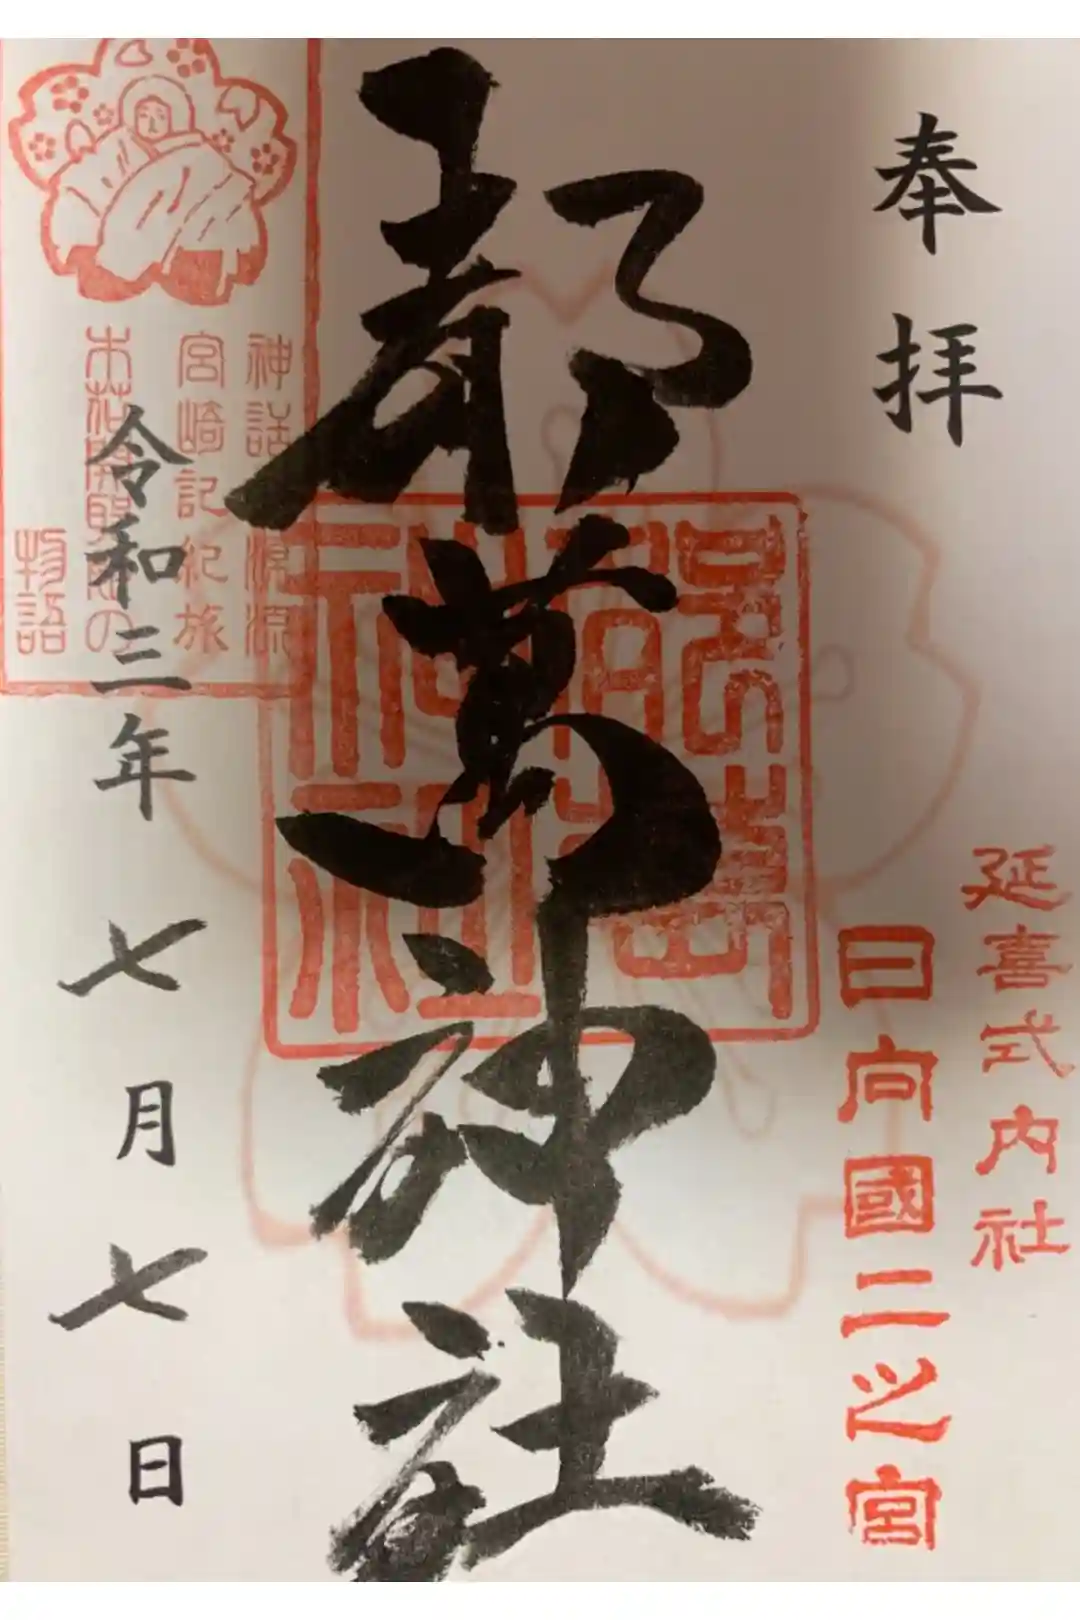 奉拝
延喜式内社
日向國二之宮
都萬神社
神話源流
宮崎記紀旅
木花開耶姫の
物語
令和三年七月七日